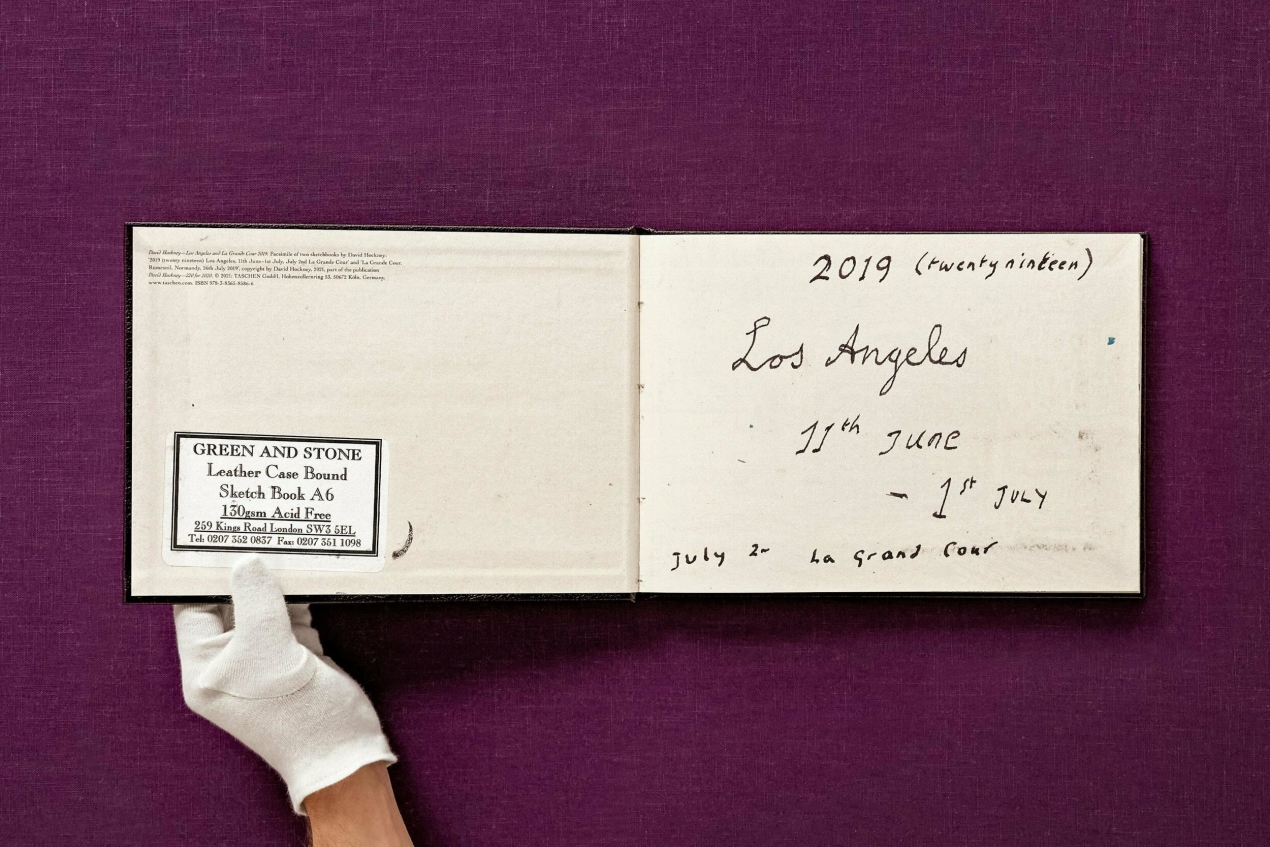 David Hockney—Los Angeles and La Grande Cour 2019. Facsimile of two sketchbooks by David Hockney:
'2019 (twenty nineteen) Los Angeles, 11th June–1st July, July 2nd La Grande Cour' and 'La Grande Cour,
Rumesnil, Normandy, 16th July 2019', copyright by David Hockney, 2021, part of the publication
David Hockney— 220 for 2020. © 2021, TASCHEN GmbH, Hohenzollernring 53, 50672 Köln, Germany,
www.taschen.com, ISBN 978-3-8365-
GREEN AND STONE
Leather Case Bound
Sketch Book A6
130gsm Acid Free
259 Kings Road London SW3 5EL
Tel: 0207 352 0837 Fax: 0207 351 1098
2019 (twenty nineteen)
Los Angeles
11th JUNE
- 1st JULY
July 2n La Grand Cour